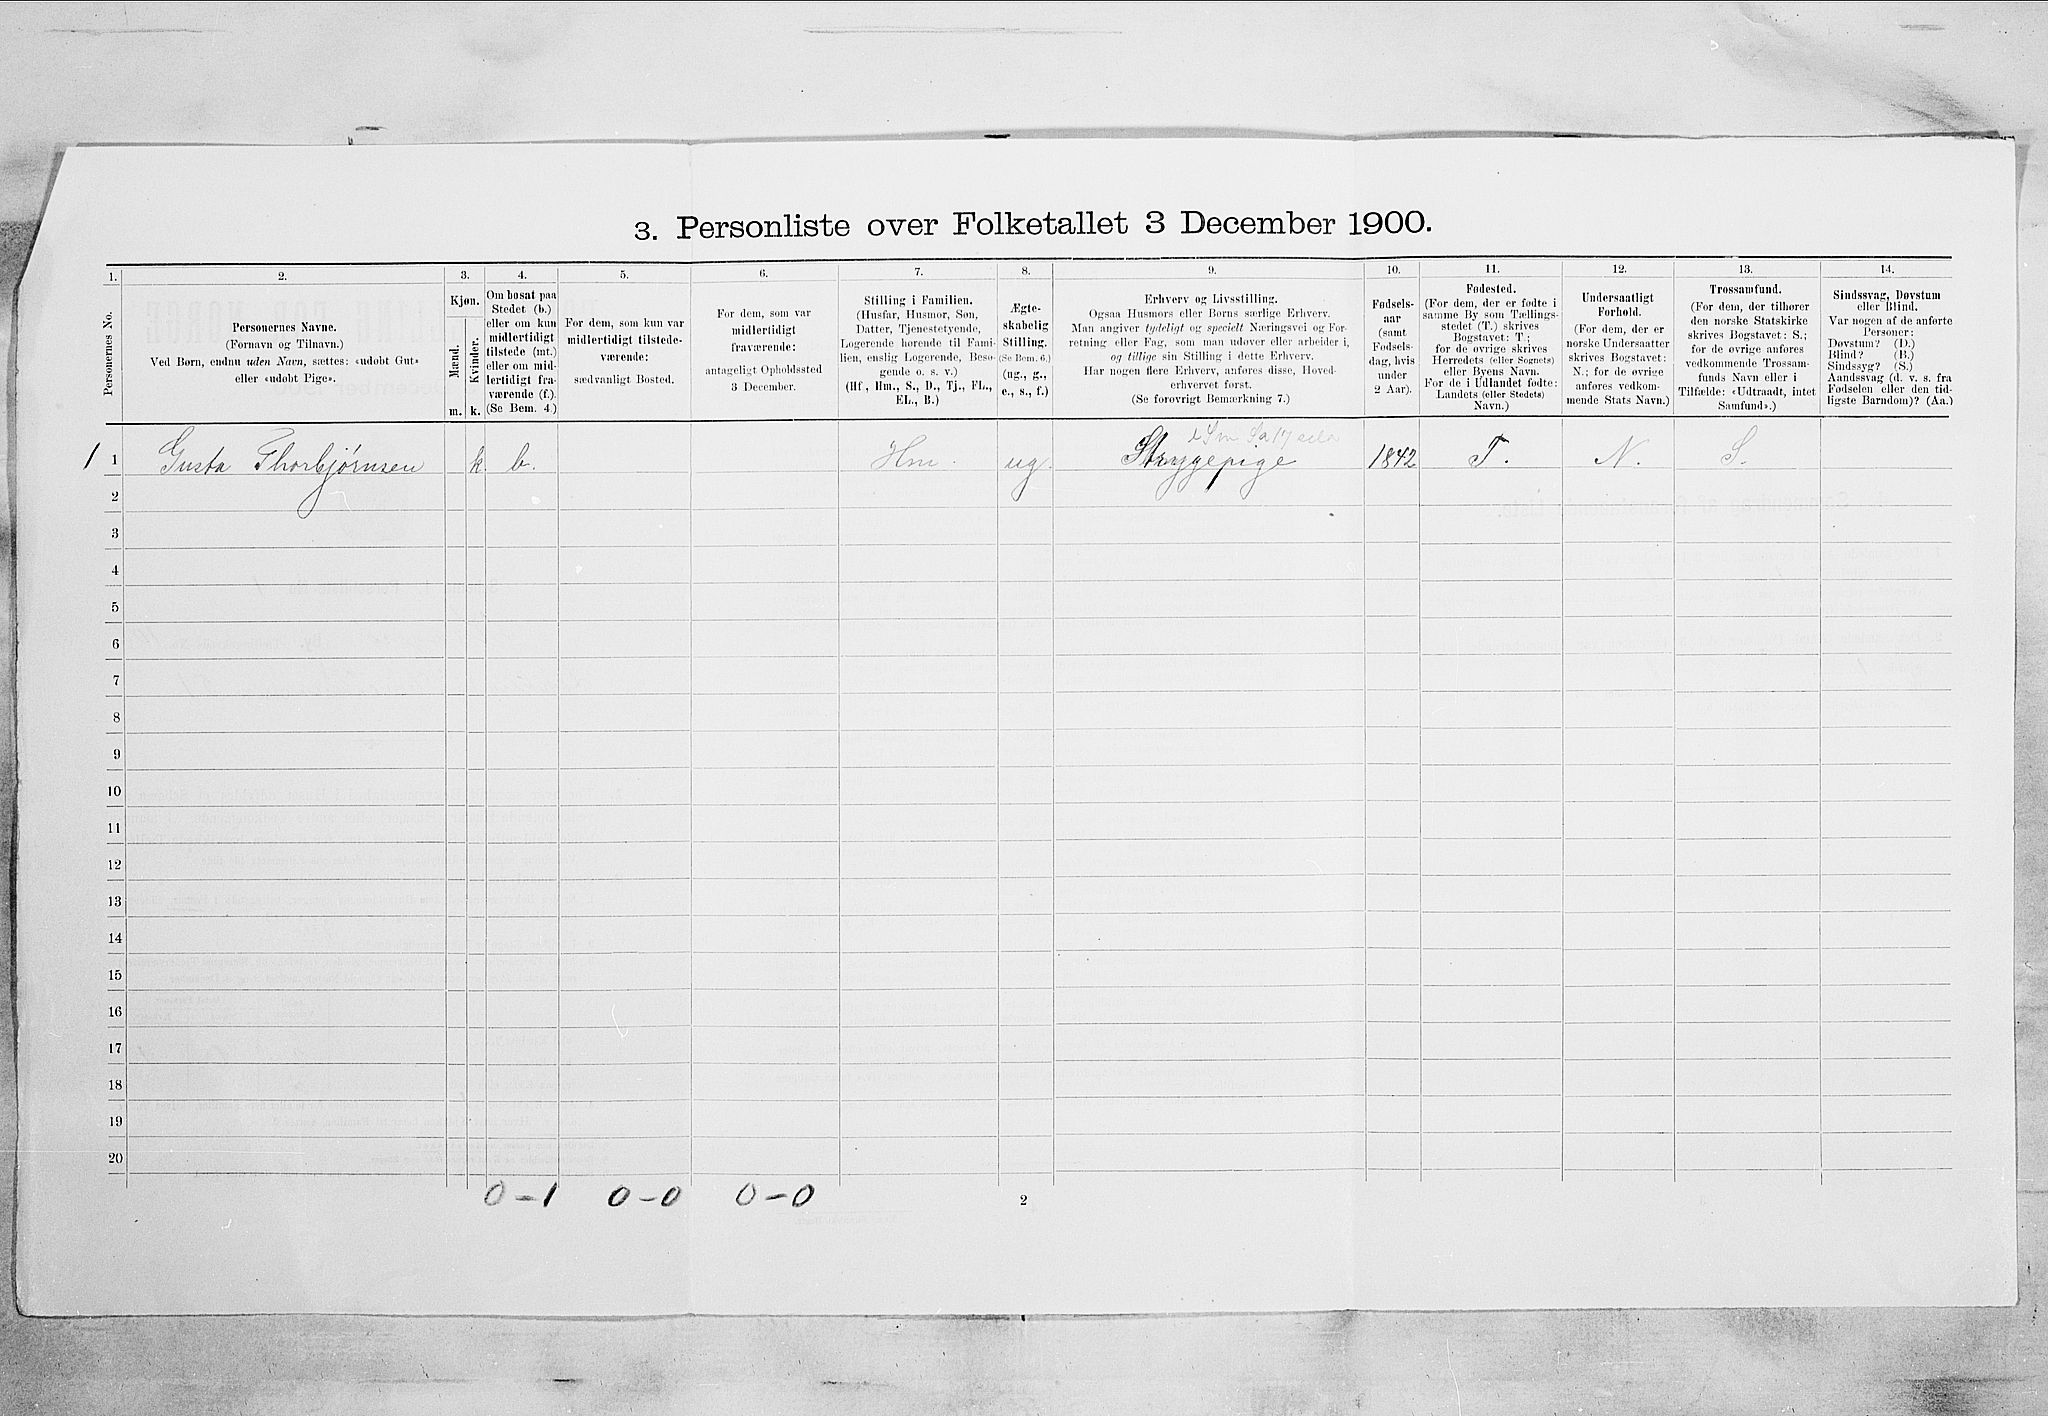 3. Personliste over Folketallet 3 December 1900.
1. 2. 3. 4. 5. 6. 7. 8. 9. 10. 11. 12. 13. 14.
Personernes No.
Personernes Navne.
(Fornavn og Tilnavn.)
Ved Børn, endnu uden Navn, sættes: «udøbt Gut»
eller «udøbt Pige».
Kjøn.
Mænd.
Kvinder.
m. k.
Om bosat paa
Stedet (b.)
eller om kun
midlertidigt
tilstede (mt.)
eller om mid-
lertidigt fra-
værende (f.).
(Se Bem. 4.)
For dem, som kun var
midlertidigt tilstede-
værende:
sædvanligt Bosted.
For dem, som var
midlertidigt
fraværende:
antageligt Opholdssted
3 December.
Stilling i Familien.
(Husfar, Husmor, Søn,
Datter, Tjenestetyende,
Logerende hørende til Fami-
lien, enslig Logerende, Besø-
gende o. s. v.)
(Hf, Hm., S., D., Tj., FL.,
EL., B.)
Ægte-
skabelig
Stilling.
(Se Bem. 6.)
(ug., g.,
e., s., f.)
Erhverv og Livsstilling.
Ogsaa Husmors eller Børns særlige Erhverv.
Man angiver tydeligt og specielt Næringsvei og For-
retning eller Fag, som man udøver eller arbeider i,
og tillige sin Stilling i dette Erhverv.
Har nogen flere Erhverv, anføres disse, Hoved-
erhvervet først.
(Se forøvrigt Bemærkning 7.)
Fødsels-
aar
(samt
Fødsels-
dag, hvis
under
2 Aar).
Fødested.
(For dem, der er fødte i
samme By som Tællings-
stedet (T.) skrives
Bogstavet: T.;
for de øvrige skrives
Herredets (eller Sognets)
eller Byens Navn.
For de i Udlandet fødte:
Landets (eller Stedets)
Navn.)
Undersaatligt
Forhold.
(For dem, der er
norske Undersaatter
skrives Bogstavet:
N.; for de øvrige
anføres vedkom-
mende Stats Navn.)
Trossamfund.
(For dem, der tilhører
den norske Statskirke
skrives Bogstavet: S.;
for de øvrige anføres
vedkommende Trossam-
funds Navn eller i
Tilfælde: «Udtraadt, intet
Samfund».)
Sindssvag, Døvstum
eller Blind.
Var nogen af de anførte
Personer:
Døvstum? (D.)
Blind? (B.)
Sindssyg? (S.)
Aandssvag (d. v. s. fra
Fødselen eller den tid-
ligste Barndom)? (Aa.)
1 1 Gusta Thorbjørnsen k b. Hm. ug. Strygepige 1842 T. N. S.
2
3
4
5
6
7
8
9
10
11
12
13
14
15
16
17
18
19
20
0-1 0-0 0-0
2